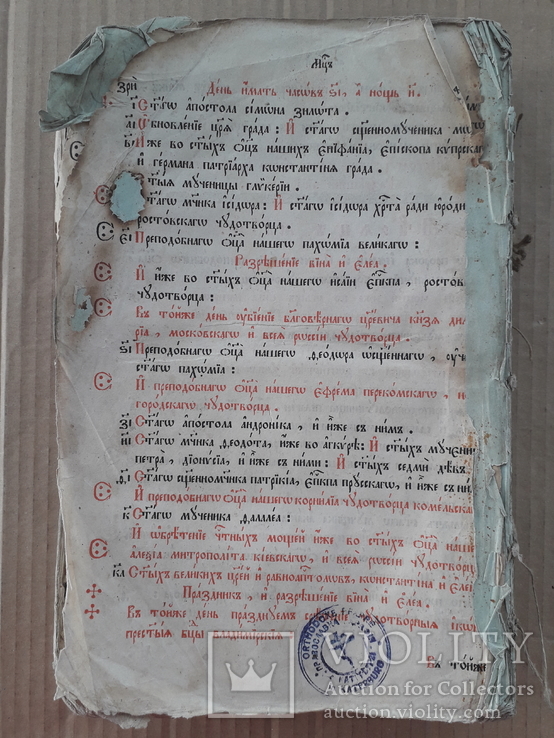 Мц҃ъ
День и҆мать часѡвъ є҃і, а҆ нощь ѳ҃.
Ст҃а́гѡ а҆по́стола сі́мѡна зилѡ́та.
ѡ҆бновле́нїе цр҃ѧ̀ гра́да: И҆ ст҃а́гѡ сщ҃енномꙋ́ченика
И҆́же во ст҃ы́хъ ѻ҆ц҃ъ на́шихъ є҆пїфа́нїа, є҆пи́скопа кѵ́прскаг
и҆ ге́рмана патрїа́рха константі́нѧ гра́да.
мꙋ́ченицы глѷке́рїи.
мч҃ника і҆сі́дѡра: И҆ ст҃а́гѡ і҆сі́дѡра хрⷭ҇та̀ ра́ди ю҆ро́ди
росто́вскагѡ чꙋдотво́рца.
є҃і Преподо́бнагѡ ѻ҆ц҃а̀ на́шегѡ пахѡ́мїа вели́кагѡ:
Разрѣше́нїе вїна̀ и҆ є҆ле́а.
И҆ и҆́же во ст҃ы́хъ ѻ҆ц҃а̀ на́шегѡ и҆са́їи є҆пⷭ҇кпа, росто́в
чꙋдотво́рца:
Въ то́йже де́нь ᲂу҆бїе́нїе благовѣ́рнагѡ цр҃е́вича кнѧ́зѧ ди
рїа, моско́вскагѡ и҆ всеѧ̀ рѡссі́и чꙋдотво́рца.
ѕ҃і Преподо́бнагѡ ѻ҆ц҃а̀ на́шегѡ, ѳео́дѡра ѡ҆сщ҃е́ннагѡ, ᲂу҆ч
ст҃а́гѡ пахѡ́мїа:
И҆ преподо́бнагѡ ѻ҆ц҃а̀ на́шегѡ є҆фре́ма переко́мскагѡ, н
горо́дскагѡ чꙋдотво́рца.
з҃і Ст҃а́гѡ а҆по́стола а҆ндро́нїка, и҆ и҆́же съ ни́мъ.
и҃і Ст҃а́гѡ мч҃ника ѳеодо́та, и҆́же во а҆гкѵ́рѣ: И҆ ст҃ы́хъ мꙋ́чени
петра̀, дїонѵ́сїа, и҆ и҆́же съ ни́ми: И҆ ст҃ы́хъ седмѝ дѣ́въ
ѳ҃і Ст҃а́гѡ сщ҃енномч҃ника патрїкі́а, є҆пⷭ҇кпа прꙋ́скагѡ, и҆ и҆́же съ ни
И҆ преподо́бнагѡ ѻ҆ц҃а̀ на́шегѡ корни́лїа чꙋдотво́рца коме́льска
к҃ Ст҃а́гѡ мꙋ́ченика ѳалале́а.
И҆ ѡ҆брѣ́тенїе чⷭ҇тны́хъ моще́й и҆́же во ст҃ы́хъ ѻ҆ц҃а̀ на́ше
а҆леѯі́а митрополі́та кі́евскагѡ, и҆ всеѧ̀ рѡссі́и чꙋдотво́рц
к҃а Ст҃ы́хъ вели́кихъ цр҃е́й и҆ равноа҆пⷭ҇толѡмъ, константі́на и҆ є҆ле́
Пра́здникъ, и҆ разрѣше́нїе вїна̀ и҆ є҆ле́а.
Въ то́йже де́нь пра́зднꙋемъ чꙋдотво́рныѧ і҆кѡ́н
прест҃ы́ѧ бц҃ы влади́мїрскїѧ
ORTHODOXE
Въ то́йже
VIOLITY
Auction for Collectors
auction.violity.com